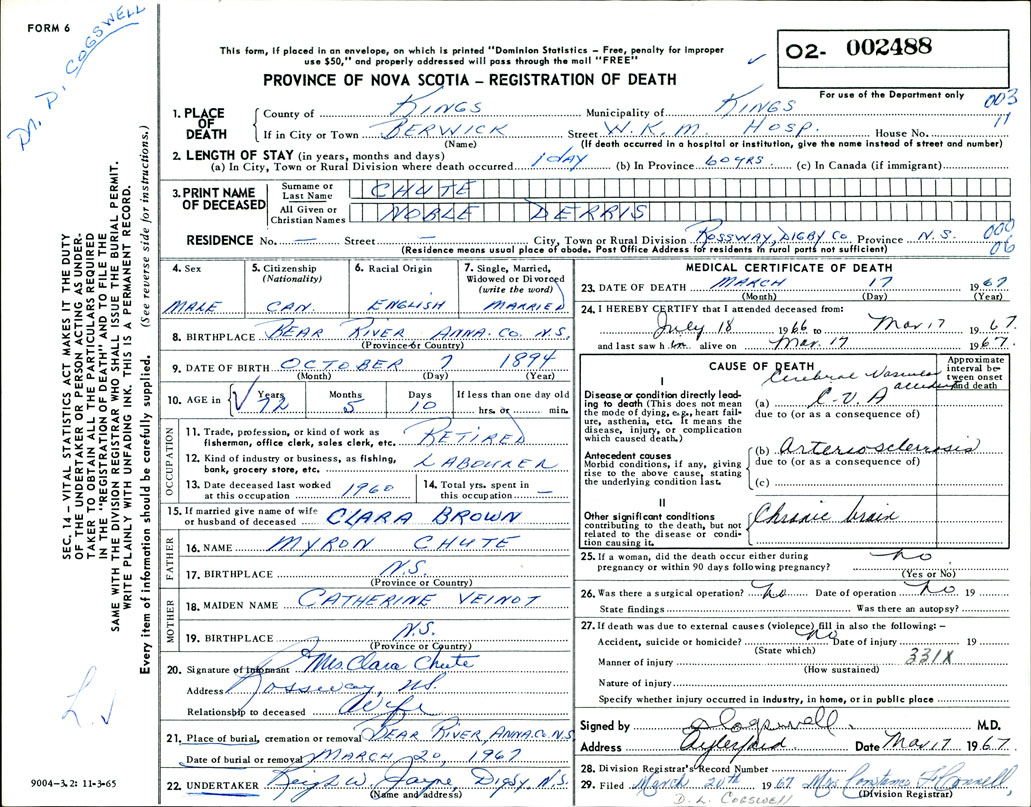 FORM 6
Dr. D. COGSWELL
This form, if placed in an envelope, on which is printed "Dominion Statistics – Free, penalty for improper
use $50," and properly addressed will pass through the mail "FREE"
PROVINCE OF NOVA SCOTIA – REGISTRATION OF DEATH
02- 002488
For use of the Department only
003
11
1. PLACE OF DEATH
County of KINGS Municipality of KINGS
If in City or Town BERWICK Street W.K.M. HOSP. House No.
(Name) (If death occurred in a hospital or institution, give the name instead of street and number)
2. LENGTH OF STAY (in years, months and days)
(a) In City, Town or Rural Division where death occurred 1 DAY (b) In Province 60 YRS. (c) In Canada (if immigrant)
3. PRINT NAME OF DECEASED
Surname or Last Name CHUTE
All Given or Christian Names NOBLE DERRIS
RESIDENCE No. — Street — City, Town or Rural Division ROSSWAY, DIGBY CO Province N.S.
(Residence means usual place of abode. Post Office Address for residents in rural parts not sufficient)
000
06
4. Sex
MALE
5. Citizenship
(Nationality)
CAN.
6. Racial Origin
ENGLISH
7. Single, Married,
Widowed or Divorced
(write the word)
MARRIED
8. BIRTHPLACE BEAR RIVER ANNA. CO. N.S.
(Province or Country)
9. DATE OF BIRTH OCTOBER 7 1894
(Month) (Day) (Year)
10. AGE in Years 72 Months 5 Days 10 If less than one day old
hrs. or min.
OCCUPATION
11. Trade, profession, or kind of work as
fisherman, office clerk, sales clerk, etc. RETIRED
12. Kind of industry or business, as fishing,
bank, grocery store, etc. LABOURER
13. Date deceased last worked
at this occupation 1960
14. Total yrs. spent in
this occupation —
15. If married give name of wife
or husband of deceased CLARA BROWN
FATHER
16. NAME MYRON CHUTE
17. BIRTHPLACE N.S.
(Province or Country)
MOTHER
18. MAIDEN NAME CATHERINE VEINOT
19. BIRTHPLACE N.S.
(Province or Country)
20. Signature of informant Mrs. Clara Chute
Address Rossway, N.S.
Relationship to deceased Wife
21. Place of burial, cremation or removal BEAR RIVER, ANNA. CO. N.S
Date of burial or removal MARCH 20, 1967
22. UNDERTAKER W. Jayne, Digby, N.S.
(Name and address)
MEDICAL CERTIFICATE OF DEATH
23. DATE OF DEATH MARCH 17 1967
(Month) (Day) (Year)
24. I HEREBY CERTIFY that I attended deceased from:
July 18 1966 to Mar. 17 1967.
and last saw h im alive on Mar. 17 1967.
CAUSE OF DEATH
Approximate interval between onset and death
I
Disease or condition directly leading to death (This does not mean
the mode of dying, e.g., heart failure, asthenia, etc. It means the
disease, injury, or complication
which caused death.)
Cerebral Vascular accident
(a) C.V.A
due to (or as a consequence of)
Antecedent causes
Morbid conditions, if any, giving
rise to the above cause, stating
the underlying condition last.
(b) Arteriosclerosis
due to (or as a consequence of)
(c)
II
Other significant conditions
contributing to the death, but not
related to the disease or condition causing it.
Chronic brain
25. If a woman, did the death occur either during
pregnancy or within 90 days following pregnancy? no
(Yes or No)
26. Was there a surgical operation? no Date of operation no 19
State findings Was there an autopsy?
27. If death was due to external causes (violence) fill in also the following: –
Accident, suicide or homicide? no Date of injury 19
(State which)
Manner of injury 331X
(How sustained)
Nature of injury
Specify whether injury occurred in industry, in home, or in public place
Signed by D Cogswell. M.D.
Address Aylesford Date Mar. 17 1967.
28. Division Registrar's Record Number
29. Filed March 20th 1967 Mrs.
(Division Registrar)
D. L. COGSWELL
SEC. 14 – VITAL STATISTICS ACT MAKES IT THE DUTY
OF THE UNDERTAKER OR PERSON ACTING AS UNDER-
TAKER TO OBTAIN ALL THE PARTICULARS REQUIRED
IN THE "REGISTRATION OF DEATH" AND TO FILE THE
SAME WITH THE DIVISION REGISTRAR WHO SHALL ISSUE THE BURIAL PERMIT.
WRITE PLAINLY WITH UNFADING INK. THIS IS A PERMANENT RECORD.
Every item of information should be carefully supplied. (See reverse side for instructions.)
9004–3.2: 11-3-65